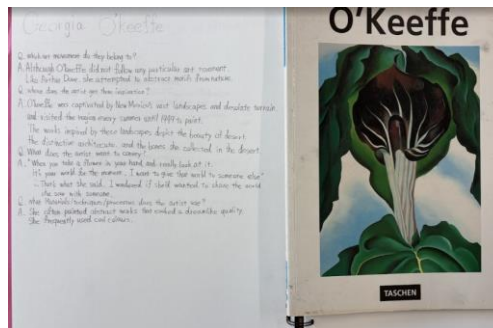 Georgia O'Keeffe
Q. Which art movement do they belong to?
A. Although O'keeffe did not follow any particular art movement.
Like Arthur Dove, she attempted to abstract motifs from nature.
Q. where does the artist get their inspiration?
A. O'keeffe was captivated by New Mexico's vast landscapes and desolate terrain,
and visited the region every summer until 1949 to paint.
The works inspired by these landscapes depict the beauty of desert,
the distinctive architecture, and the bones she collected in the desert.
Q. What does the artist want to convey?
A. "When you take a flower in your hand and really look at it,
it's your world for the moment. I want to give that world to someone else"
Thats what she said. I wondered if she'd wanted to share the world
she saw with someone.
Q. What Materials/techniques/processes does the artist use?
A. She often painted abstract works that evoked a dreamlike quality.
She frequently used cool colours.
O'Keeffe
TASCHEN